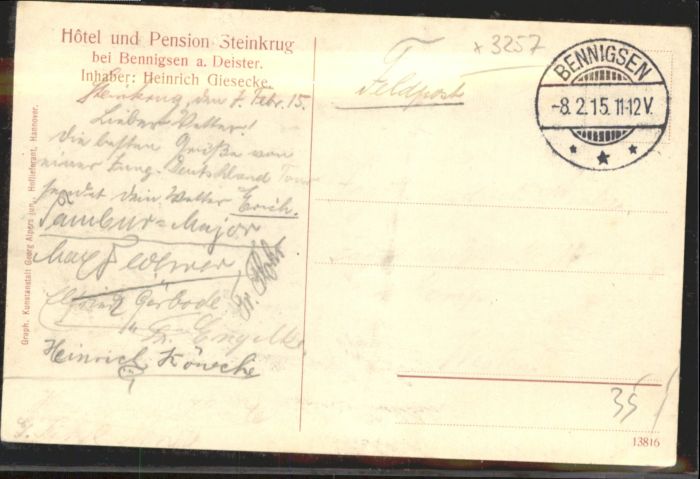 Hôtel und Pension Steinkrug
bei Bennigsen a. Deister.
Inhaber: Heinrich Giesecke.
Steinkrug, den 7. Febr. 15.
Lieber Vetter!
Die besten Grüße von
einer Jung-Deutschland Tour
sendet dein Vetter Erich.
Tambur-Major
Max
Gerbode
Fr.
Heinrich
Graph. Kunstanstalt Georg Alpers jun., Hoflieferant, Hannover.
x 3257
Feldpost
BENNIGSEN
-8.2.15. 11-12V.
35
13816